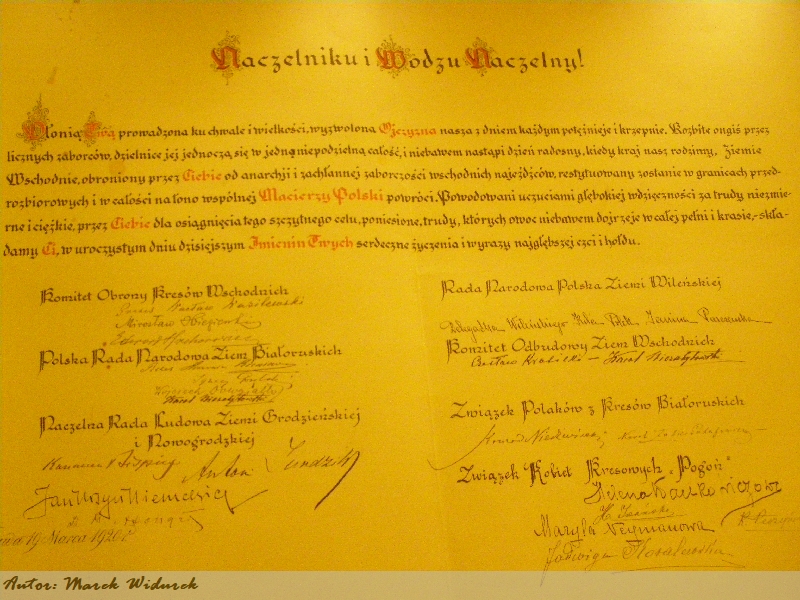 Naczelniku i Wodzu Naczelny!
Dłonią Twą prowadzona ku chwale i wielkości, wyzwolona Ojczyzna nasza z dniem każdym potężnieje i krzepnie. Rozbite ongiś przez
licznych zaborców, dzielnice jej jednoczą się w jedną niepodzielną całość, i niebawem nastąpi dzień radosny, kiedy kraj nasz rodzimy, Ziemie
Wschodnie, obroniony przez Ciebie od anarchji i zachłannej zaborczości wschodnich najeźdźców, restytuowany zostanie w granicach przed-
rozbiorowych i w całości na łono wspólnej Macierzy Polski powróci. Powodowani uczuciami głębokiej wdzięczności za trudy niezmier-
ne i ciężkie, przez Ciebie dla osiągnięcia tego szczytnego celu, poniesione, trudy, których owoc niebawem dojrzeje w całej pełni i krasie,- skła-
damy Ci, w uroczystym dniu dzisiejszym Imienin Twych serdeczne życzenia i wyrazy najgłębszej czci i hołdu.
Komitet Obrony Kresów Wschodnich
Mirosław
Edward
Polska Rada Narodowa Ziem Białoruskich
Naczelna Rada Ludowa Ziemi Grodzieńskiej
i Nowogrodzkiej
Anton
Jan Ursyn Niemcewicz
19 Marca 1920 r
Rada Narodowa Polska Ziemi Wileńskiej
Delegatka Wileńskiego Koła Janina
Komitet Odbudowy Ziem Wschodnich
Czesław Krabicki - Karol
Związek Polaków z Kresów Białoruskich
Konrad
Związek Kobiet Kresowych „Pogoń”
Helena
Maryla Neymanowa
Jadwiga Kowalewska
Autor: Marek Widurek